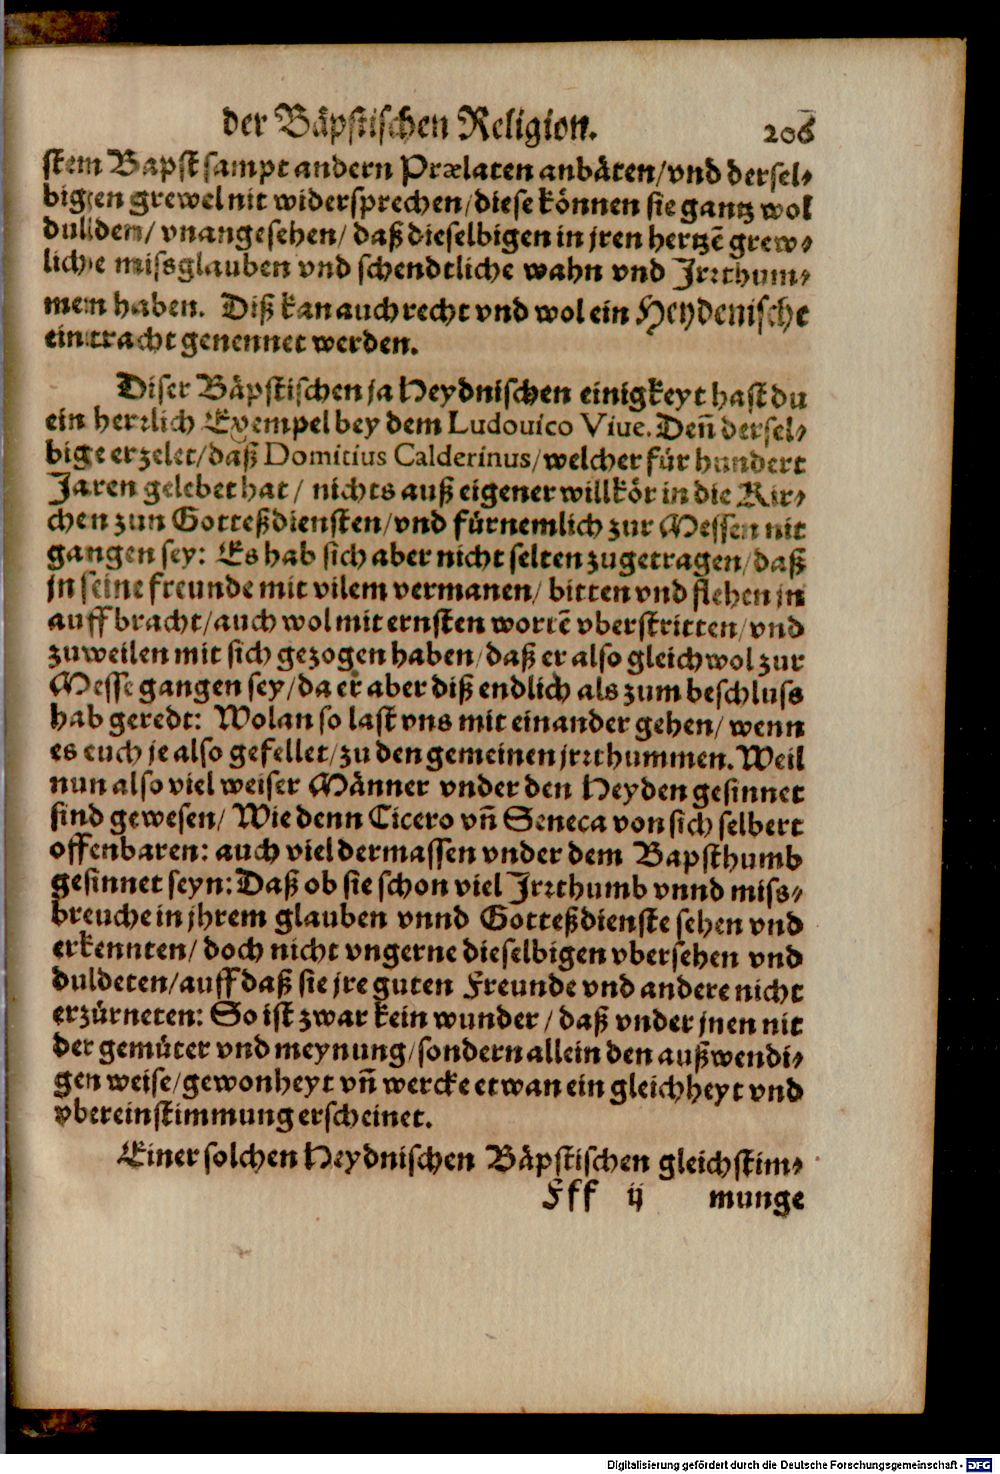 der Bäpstischen Religion. 206
stem Bapst sampt andern Prælaten anbäten/ vnd dersel-
bigen grewel nit widersprechen/ diese können sie gantz wol
dulden/ vnangesehen/ daß dieselbigen in jren hertzē grew-
liche missglauben vnd schendtliche wahn vnd Irrthum-
men haben. Diß kan auch recht vnd wol ein Heydenische
eintracht genennet werden.
Diser Bäpstischen ja Heydnischen einigkeyt hast du
ein herrlich Exempel bey dem Ludouico Viue. Deñ dersel-
bige erzelet/ daß Domitius Calderinus/ welcher für hundert
Jaren gelebet hat/ nichts auß eigener willkör in die Kir-
chen zun Gotteßdiensten/ vnd fürnemlich zur Messen nit
gangen sey: Es hab sich aber nicht selten zugetragen/ daß
jn seine freunde mit vilem vermanen/ bitten vnd flehen jn
auffbracht/ auch wol mit ernsten wortē vberstritten/ vnd
zuweilen mit sich gezogen haben/ daß er also gleichwol zur
Messe gangen sey/ da er aber diß endlich als zum beschluss
hab geredt: Wolan so last vns mit einander gehen/ wenn
es euch je also gefellet/ zu den gemeinen jrrthummen. Weil
nun also viel weiser Männer vnder den Heyden gesinnet
sind gewesen/ Wie denn Cicero vñ Seneca von sich selbert
offenbaren: auch viel dermassen vnder dem Bapsthumb
gesinnet seyn: Daß ob sie schon viel Irrthumb vnnd miss-
breuche in jhrem glauben vnnd Gotteßdienste sehen vnd
erkennten/ doch nicht vngerne dieselbigen vbersehen vnd
duldeten/ auff daß sie jre guten Freunde vnd andere nicht
erzürneten: So ist zwar kein wunder/ daß vnder jnen nit
der gemüter vnd meynung/ sondern allein den außwendi-
gen weise/ gewonheyt vñ wercke etwan ein gleichheyt vnd
vbereinstimmung erscheinet.
Einer solchen Heydnischen Bäpstischen gleichstim-
Fff ij munge
Digitalisierung gefördert durch die Deutsche Forschungsgemeinschaft - DFG